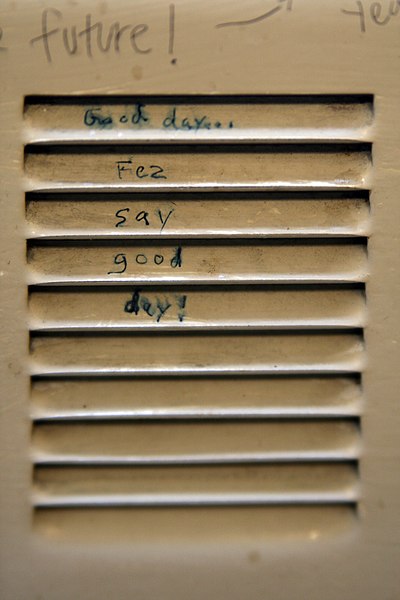 future!
Good day...
Fez
say
good
day!